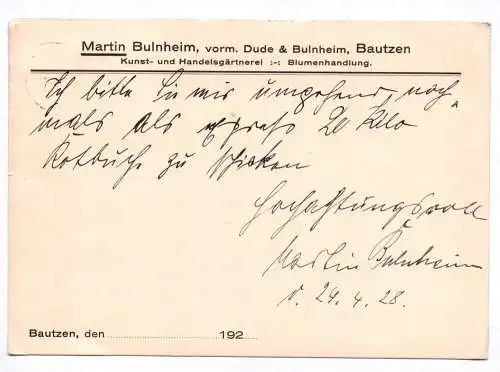 Martin Bulnheim, vorm. Dude & Bulnheim, Bautzen
Kunst- und Handelsgärtnerei :-: Blumenhandlung.
Ich bitte Sie mir umgehend noch-
mals als express 20 Kilo
Rotbuche zu schicken
Hochachtungsvoll
Martin Bulnheim
d. 24. 4. 28.
Bautzen, den 192